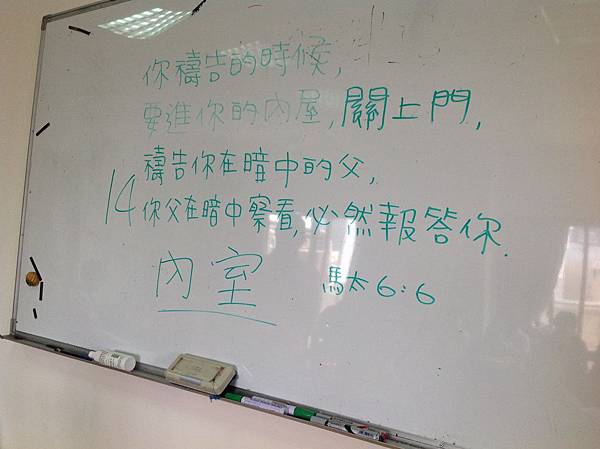 你禱告的時候,
要進你的內屋,關上門,
禱告你在暗中的父,
14 你父在暗中察看,必然報答你.
內室 馬太6:6